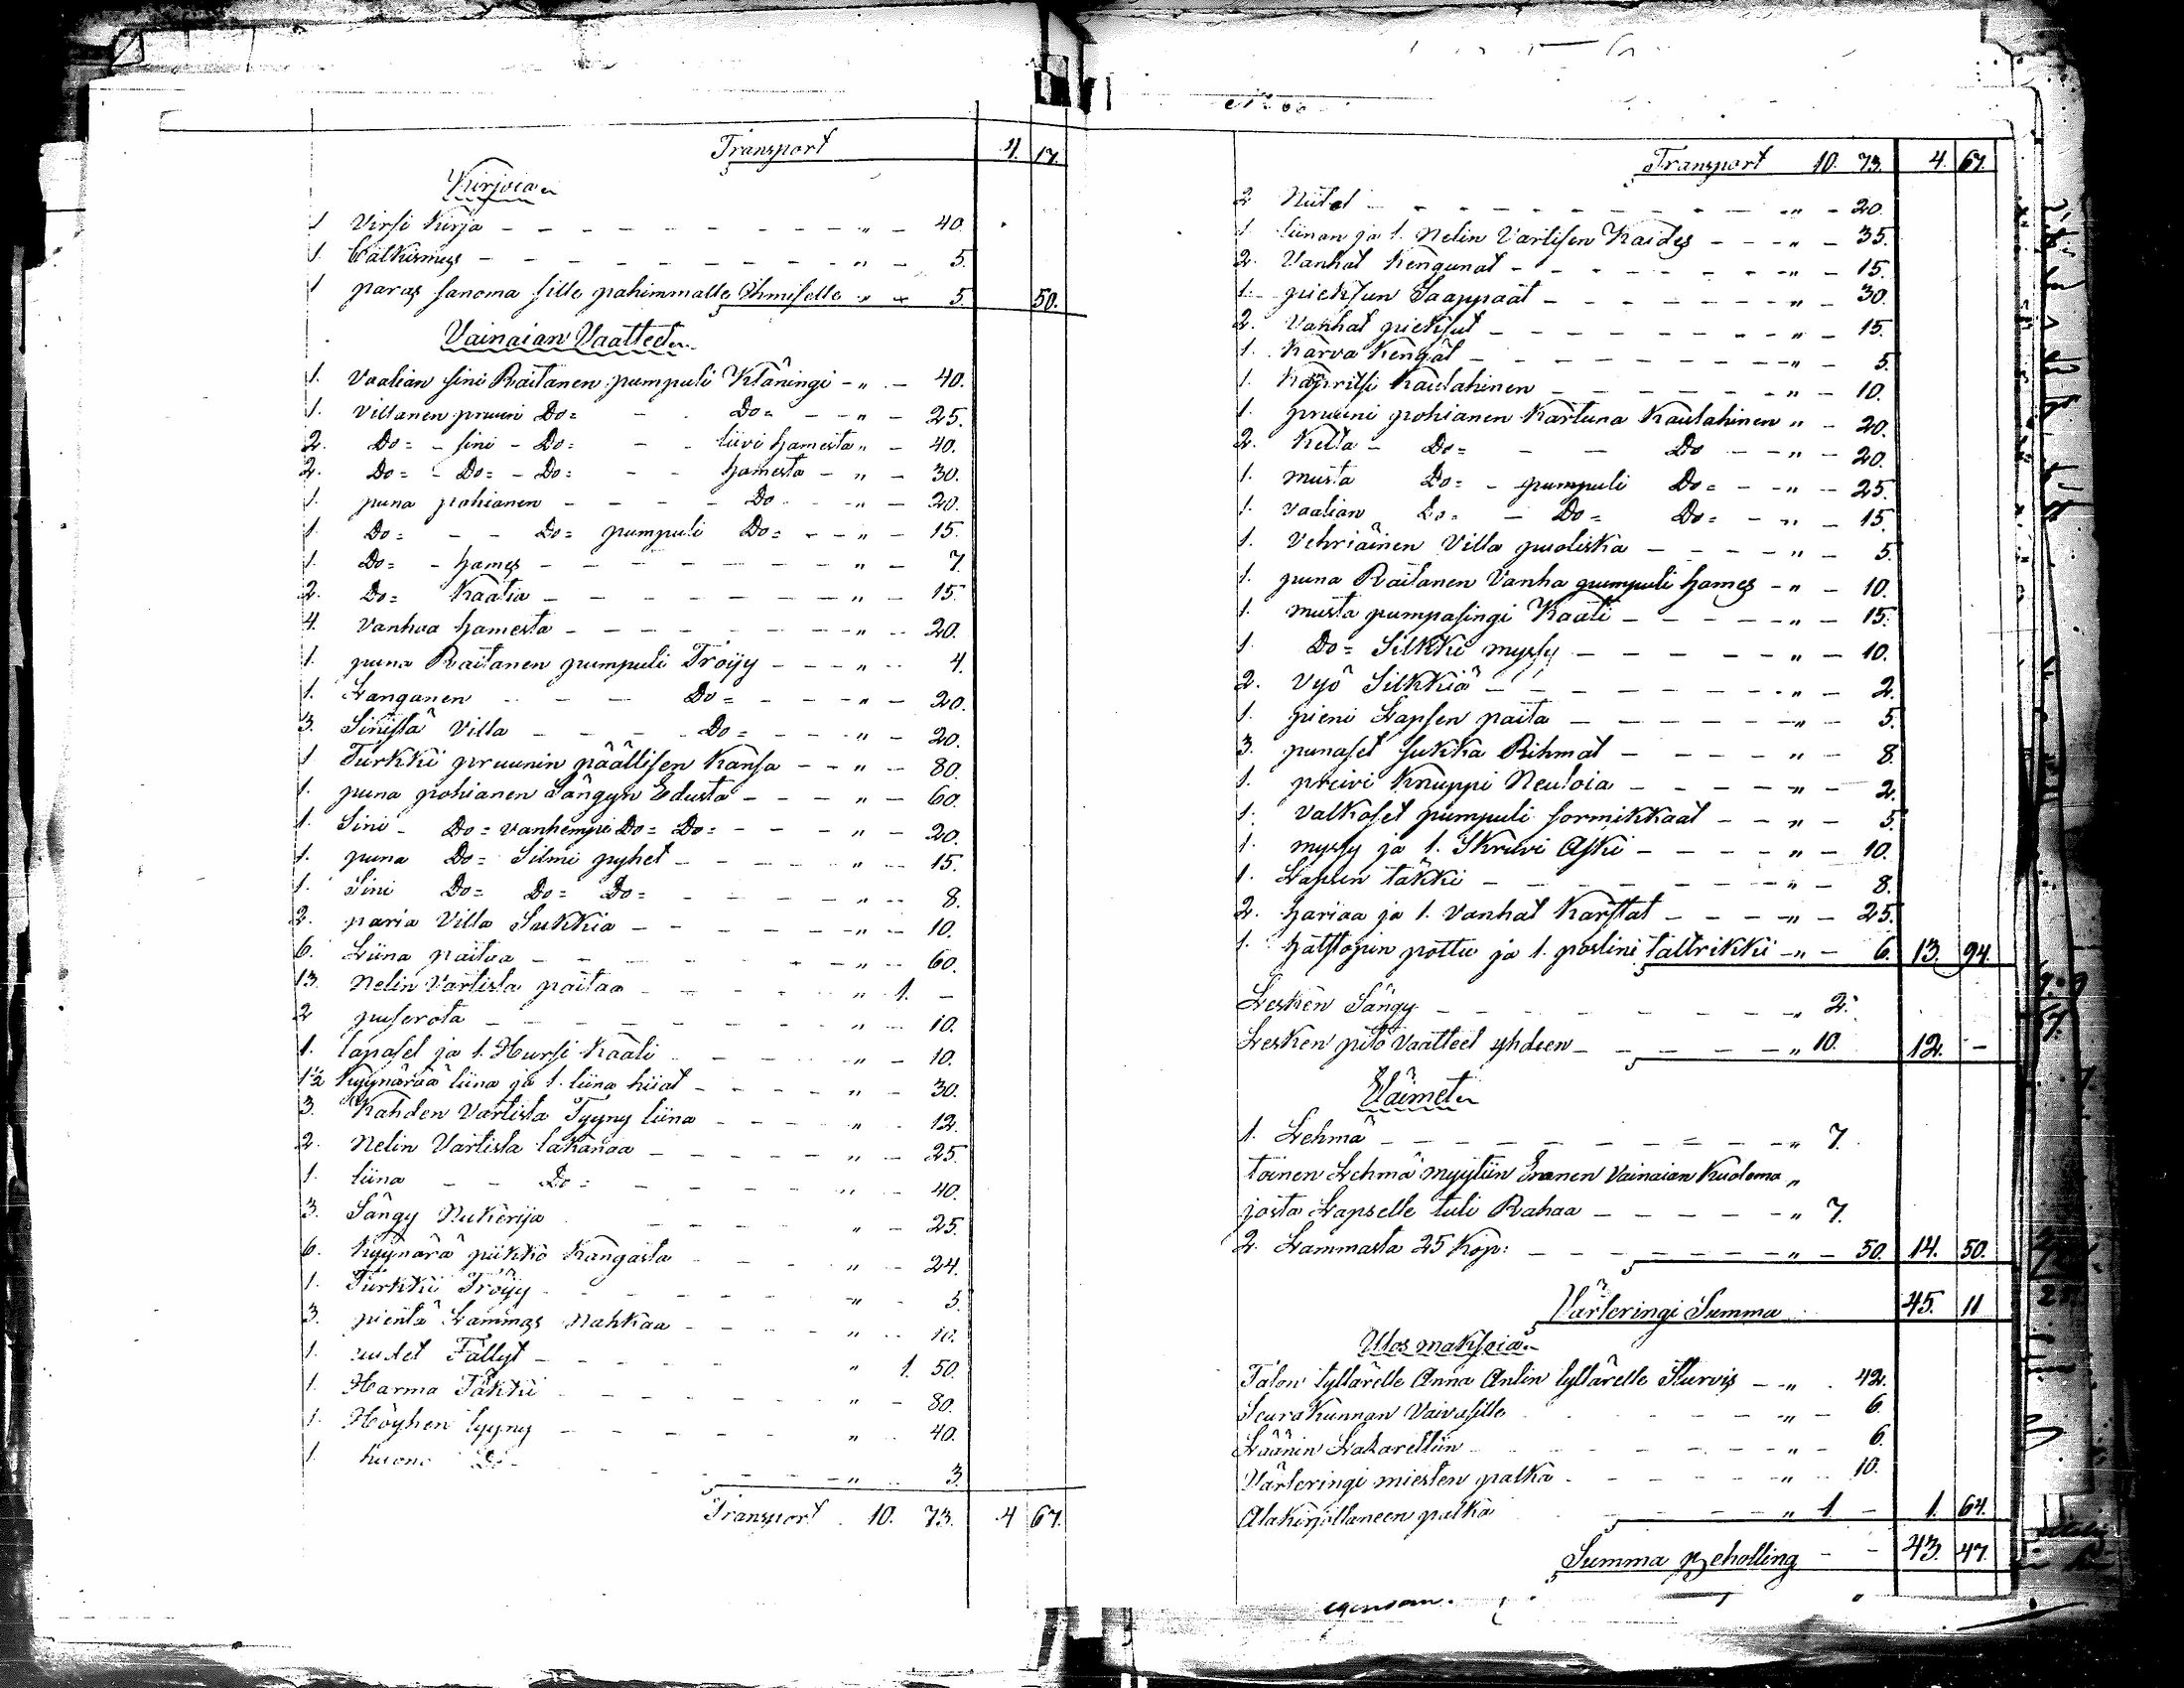 Transport 4. 17.
Kirjoia
1 Virsi Kirja - - - " - 40.
1. Catkismus - - - " - 5.
1 paras sanoma sille pahimmalle Ihmiselle " - 5. 50.
Vainaian Vaatteet
1. Vaalian sini Raitanen pumpuli Kläningi - " - 40.
1. Villanen pruuni Do= - Do= - " - 25.
2. Do= - sini - Do= - liivi hamesta " - 40.
2. Do= - Do= - Do= - hamesta - " - 30.
1. puna pohianen - - - Do - " - 20.
1. Do= - - Do= pumpuli Do= - " - 15.
1. Do= - hames - - - " - 7.
2. Do= Kaatia - - - " - 15.
4. Vanhaa hamesta - - - " - 20.
1. puna Raitanen pumpuli Tröijy - - - " - 4.
1. Langanen - - - Do= - - " - 20.
3. Sinistä Villa - - - Do= - - " - 20.
1 Turkki pruunin päällisen Kansa - - " - 80.
1. puna pohianen sängyn Edusta - - - " - 60.
1. Sini - Do= vanhempi Do= Do= - - " - 20.
1. puna Do= Silmi pyhet - - - " - 15.
1. Sini Do= Do= Do= - - - " - 8.
2. paria Villa Sukkia - - - " - 10.
6. Liina paitaa - - - " - 60.
13. Nelin Vartista paitaa - - - " 1. -
2 puserota - - - " - 10.
1. lapaset ja 1. Hursi Kaali - - - " - 10.
1 1/2 Kyynärää liina ja 1. liina hiiat - - - " - 30.
3. Kahden Vartista Tyyny liina - - - " - 12.
2. Nelin Vartista lakanaa - - - " - 25.
1. liina - - Do= - - - " - 40.
3. Sängy Nukerija - - - " - 25.
6. Kyynärä piikko Kangasta - - - " - 24.
1. Turkki Tröijy - - - " - 5.
3. pientä Lammas Nahkaa - - - " - 10.
1. uudet Fällyt - - - " 1. 50.
1. Harma Täkki - - - " - 80.
1. Höyhen tyyny - - - " - 40.
1. huono Do - - - " - 3.
Transport 10. 73. 4 67.
Transport 10. 73. 4. 67.
2 Niitet - - - " - 20.
1. liinan ja 1. Nelin Vartisen Kaides - - - " - 35.
2. Vanhat Kengunat - - - " - 15.
1. pieksun Saappaat - - - " - 30.
2. Vanhat pieksut - - - " - 15.
1. Karva Kengät - - - " - 5.
1. Kapritsi Kaulahinen - - - " - 10.
1. pruuni pohianen Kartuna Kaulahinen " - 20.
2. Kelta - Do= - - Do - - " - 20.
1. musta Do= - pumpuli Do= - - " - 25.
1. Vaalian Do= - Do= Do= - " - 15.
1. Vehriäinen Villa puoliska - - - " - 5.
1. puna Raitanen Vanha pumpuli hames - " - 10.
1. musta pumpasingi Kaali - - - " - 15.
1. Do= Silkki myssy - - - " - 10.
2. Vyö Silkkiä - - - " - 2.
1. pieni Lapsen paita - - - " - 5.
3. punaset sukka Rihmat - - - " - 8.
1. preivi Knuppi Neuloia - - - " - 2.
1. Valkoset pumpuli sormikkaat - - " - 5.
1. myssy ja 1. Skruvi Aski - - - " - 10.
1. Lapsen täkki - - - " - 8.
2. hariaa ja 1. vanhat Karstat - - - " - 25.
1. hatstopin pottu ja 1. poslini tältrikki - " - 6. 13. 94.
Lesken Sängy - - - " 2.
Lesken pito Vaatteet yhdeen - - - " 10. 12. -
Eläimet
1. Lehmä - - - " 7.
toinen Lehmä myytiin Ennen Vainaian Kuolema "
josta Lapselle tuli Rahaa - - - " 7.
2. Lammasta 25 Kop: - - - " - 50. 14. 50.
Värteringi Summa 45. 11
Ulos maksoia
Talon tyttärelle Anna Antin tyttärelle Sturvis - " . 42.
Seurakunnan Vaivasille - - " - 6.
Läänin Lasarettiin - - - " - 6.
Värteringi miesten palka - - - " - 10.
Alakirjottaneen palka - - - " 1 - 1. 64.
Summa beholling - - 43. 47.